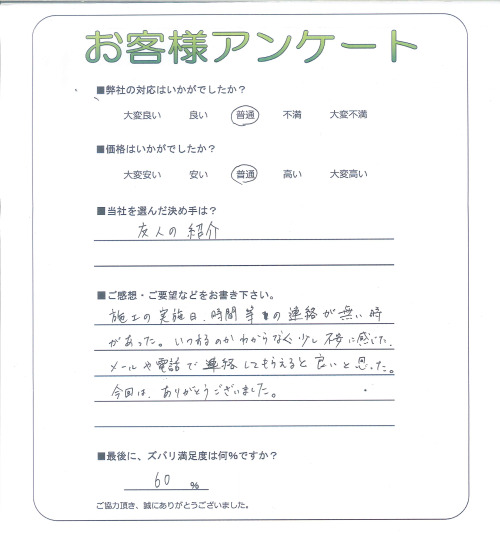 お客様アンケート
■弊社の対応はいかがでしたか？
大変良い 良い 普通 不満 大変不満
■価格はいかがでしたか？
大変安い 安い 普通 高い 大変高い
■当社を選んだ決め手は？
友人の紹介
■ご感想・ご要望などをお書き下さい。
施工の実施日、時間等の連絡が無い時
があった。いつするのかわからなく少し不安に感じた。
メールや電話で連絡してもらえると良いと思った。
今回は、ありがとうございました。
■最後に、ズバリ満足度は何%ですか？
60 %
ご協力頂き、誠にありがとうございました。